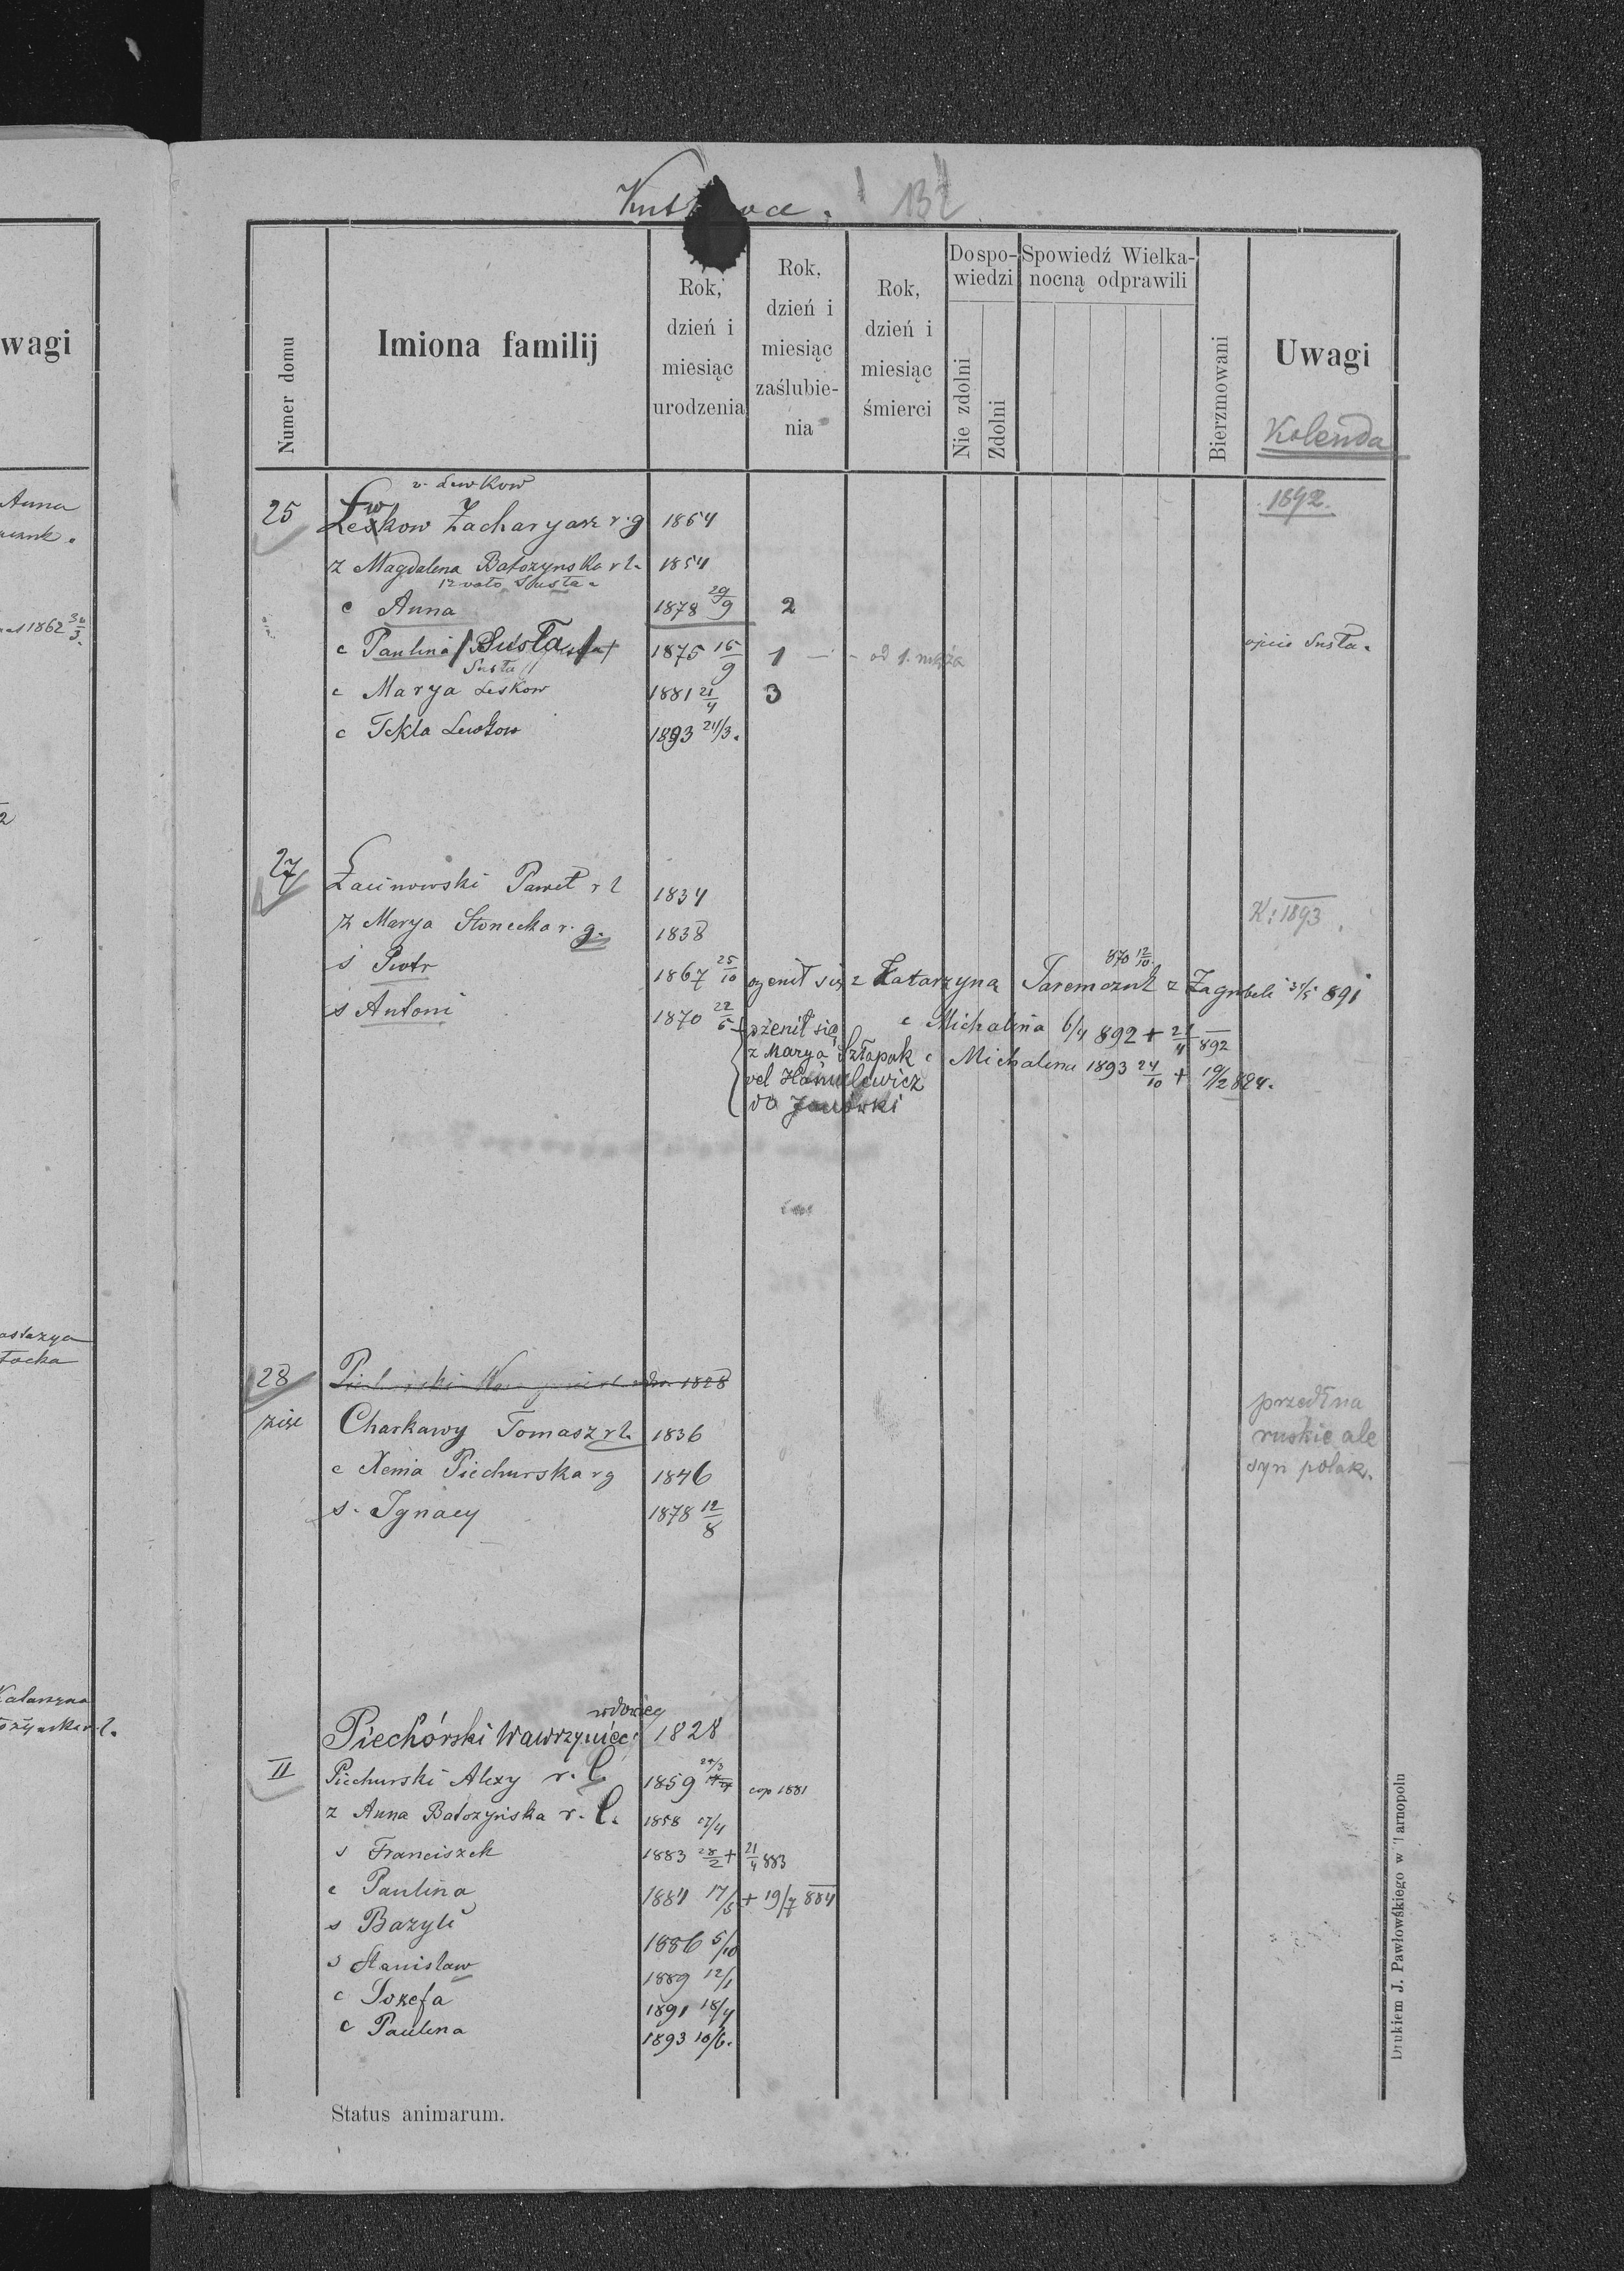 wagi
Anna
1862 30/3
2
astazya
Kust ce. 132
Numer domu
Imiona familij
Rok, dzień i miesiąc urodzenia
Rok, dzień i miesiąc zaślubienia
Rok, dzień i miesiąc śmierci
Do spowiedzi
Nie zdolni
Zdolni
Spowiedź Wielkanocną odprawili
Bierzmowani
Uwagi
Kolenda
v. Lewkow
25 Leskow Zacharyasz r. g 1864 1892.
z Magdalena Batozynska r l. 1854
12 voto Susta.
c Anna 1878 29/9 2
c Paulina Susta 1875 15/9 1 — - od 1. męża ojca Susła.
Susła
c Marya Leskow 1881 21/4 3
c Tekla Lewkow 1893 24/3.
27 Łacinowski Paweł r l 1834
z Marya Słonecka r. g. 1838 K: 1893
s Piotr 1867 25/10 ożenił się z Katarzyną Jaremczuk z Zagrobeli 31/5 891
870 12/10
s Antoni 1870 22/5 ożenił się
c Michalina 6/4 892 + 21/4 892
z Marya Szłapak c Michalina 1893 24/10 + 19/2 894.
vel Hanulewicz
do Janówki
28 1828
Charkawy Tomasz r l. 1836
przedtna
ruskie ale
syn polak.
c Xenia Piechurska r g 1846
s. Ignacy 1878 12/8
wdowiec
Piechórski Wawrzyniec 1828
II Piechurski Alexy r. l 1859 24/3 cop 1881
z Anna Batożyńska r. l. 1858 27/4
s Franciszek 1883 28/2 + 21/4 883
c Paulina 1884 17/5 + 19/7 884
s Bazyli 1886 5/10
s Stanisław 1889 12/1
c Józefa 1891 18/4
c Paulina 1893 10/6.
Status animarum.
Drukiem J. Pawłowskiego w Tarnopolu